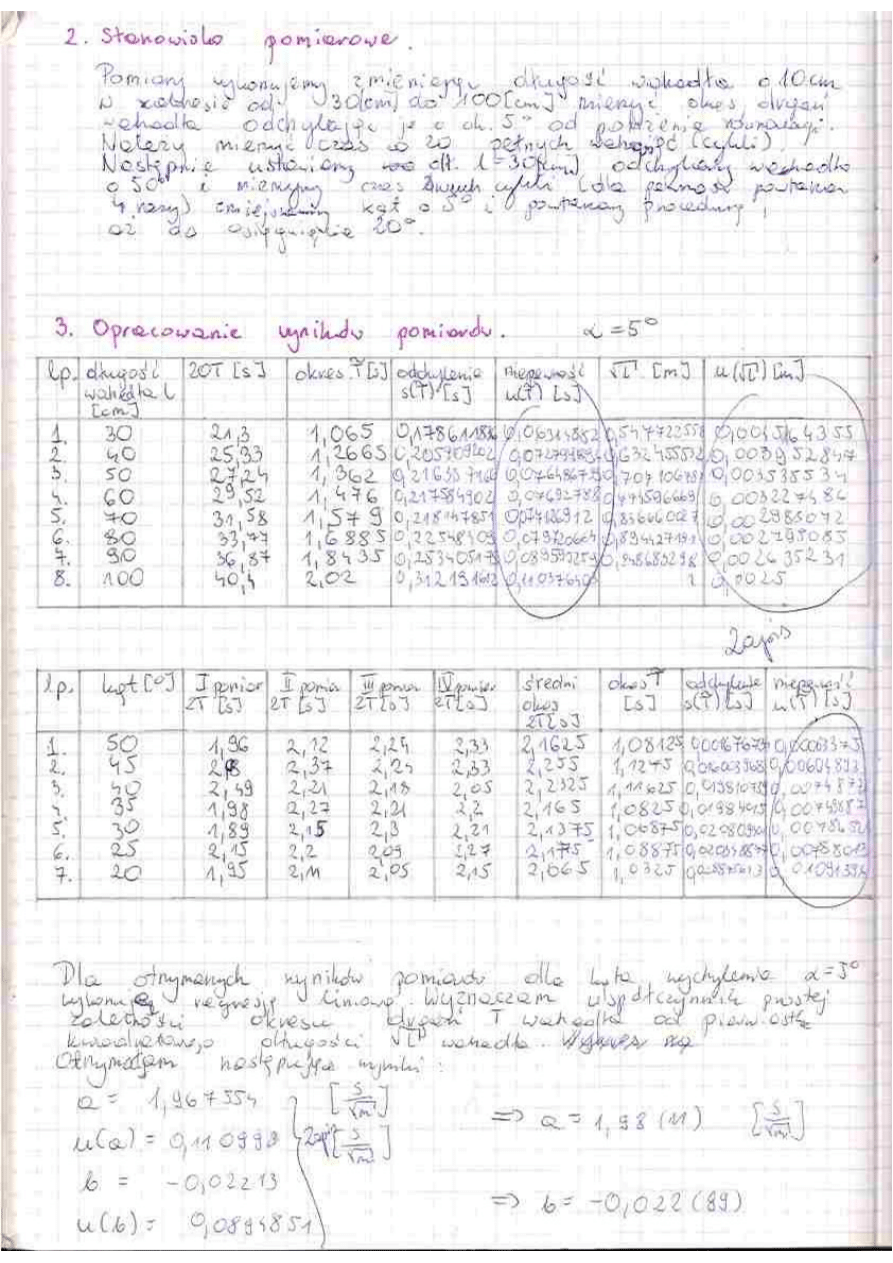 2. Stanowisko pomiarowe.
Pomiary wykonujemy zmieniając długość wahadła o 10cm
w zakresie od 30[cm] do 100[cm] mierząc okres drgań
wahadła odchylając je o ok. 5° od położenia równowagi.
Należy mierzyć czas 20 pełnych wahnięć (cykli).
Następnie ustawiamy dł. l=30[cm] odchylamy wachadło
o 50° i mierzymy czas dwóch cykli (dla pewności powtarzam
4 razy) zmiejszamy kąt o 5° i powtarzamy procedurę,
aż do osiągnięcia 20°.
3. Opracowanie wyników pomiarów. α=5°
lp. długość wahadła l [cm] 20T [s] okres T [s] odchylenie s(T) [s] niepewność u(T) [s] √l [m] u(√l) [m]
1. 30 21,3 1,065 0,178611886 0,06314852 0,547722558
2. 40 25,33 1,2665 0,632455532 0,003952847
3. 50 27,24 1,362 0,003535534
4. 60 29,52 1,476 0,217584902 0,774596669 0,003227486
5. 70 31,58 1,579 0,218147851 0,836660027 0,002988072
6. 80 33,77 1,6885 0,22548409 0,894427191 0,002795085
7. 90 36,87 1,8435 0,948683298 0,002635231
8. 100 40,4 2,02 1 0,0025
Zapis
lp. kąt [°] I pomiar 2T [s] II pomiar 2T [s] III pomiar 2T [s] IV pomiar 2T [s] średni okres 2T [s] okres T [s] odchylenie s(T) [s] niepewność u(T) [s]
1. 50 1,96 2,12 2,24 2,33 2,1625 1,08125
2. 45 2,37 2,24 2,33 2,255 1,1275
3. 40 2,49 2,21 2,18 2,05 2,2325 1,11625
4. 35 1,98 2,27 2,21 2,2 2,165 1,0825
5. 30 1,89 2,15 2,3 2,21 2,1375 1,06875
6. 25 2,15 2,2 2,09 2,27 2,175 1,08875
7. 20 1,95 2,11 2,05 2,15 2,065 1,0325
Dla otrzymanych wyników pomiarów dla kąta wychylenia α=5°
wykonuję regresję liniową. Wyznaczam współczynnik prostej
zależności okresu drgań T wahadła od pierwiastka
kwadratowego długości √l wahadła.
Otrzymałem następujące wyniki:
a = 1,967554 [s/√m] => a = 1,98 (11) [s/√m]
u(a) = 0,110998 Zapis [s/√m]
b = -0,02213 => b = -0,022 (89)
u(b) = 0,0894851